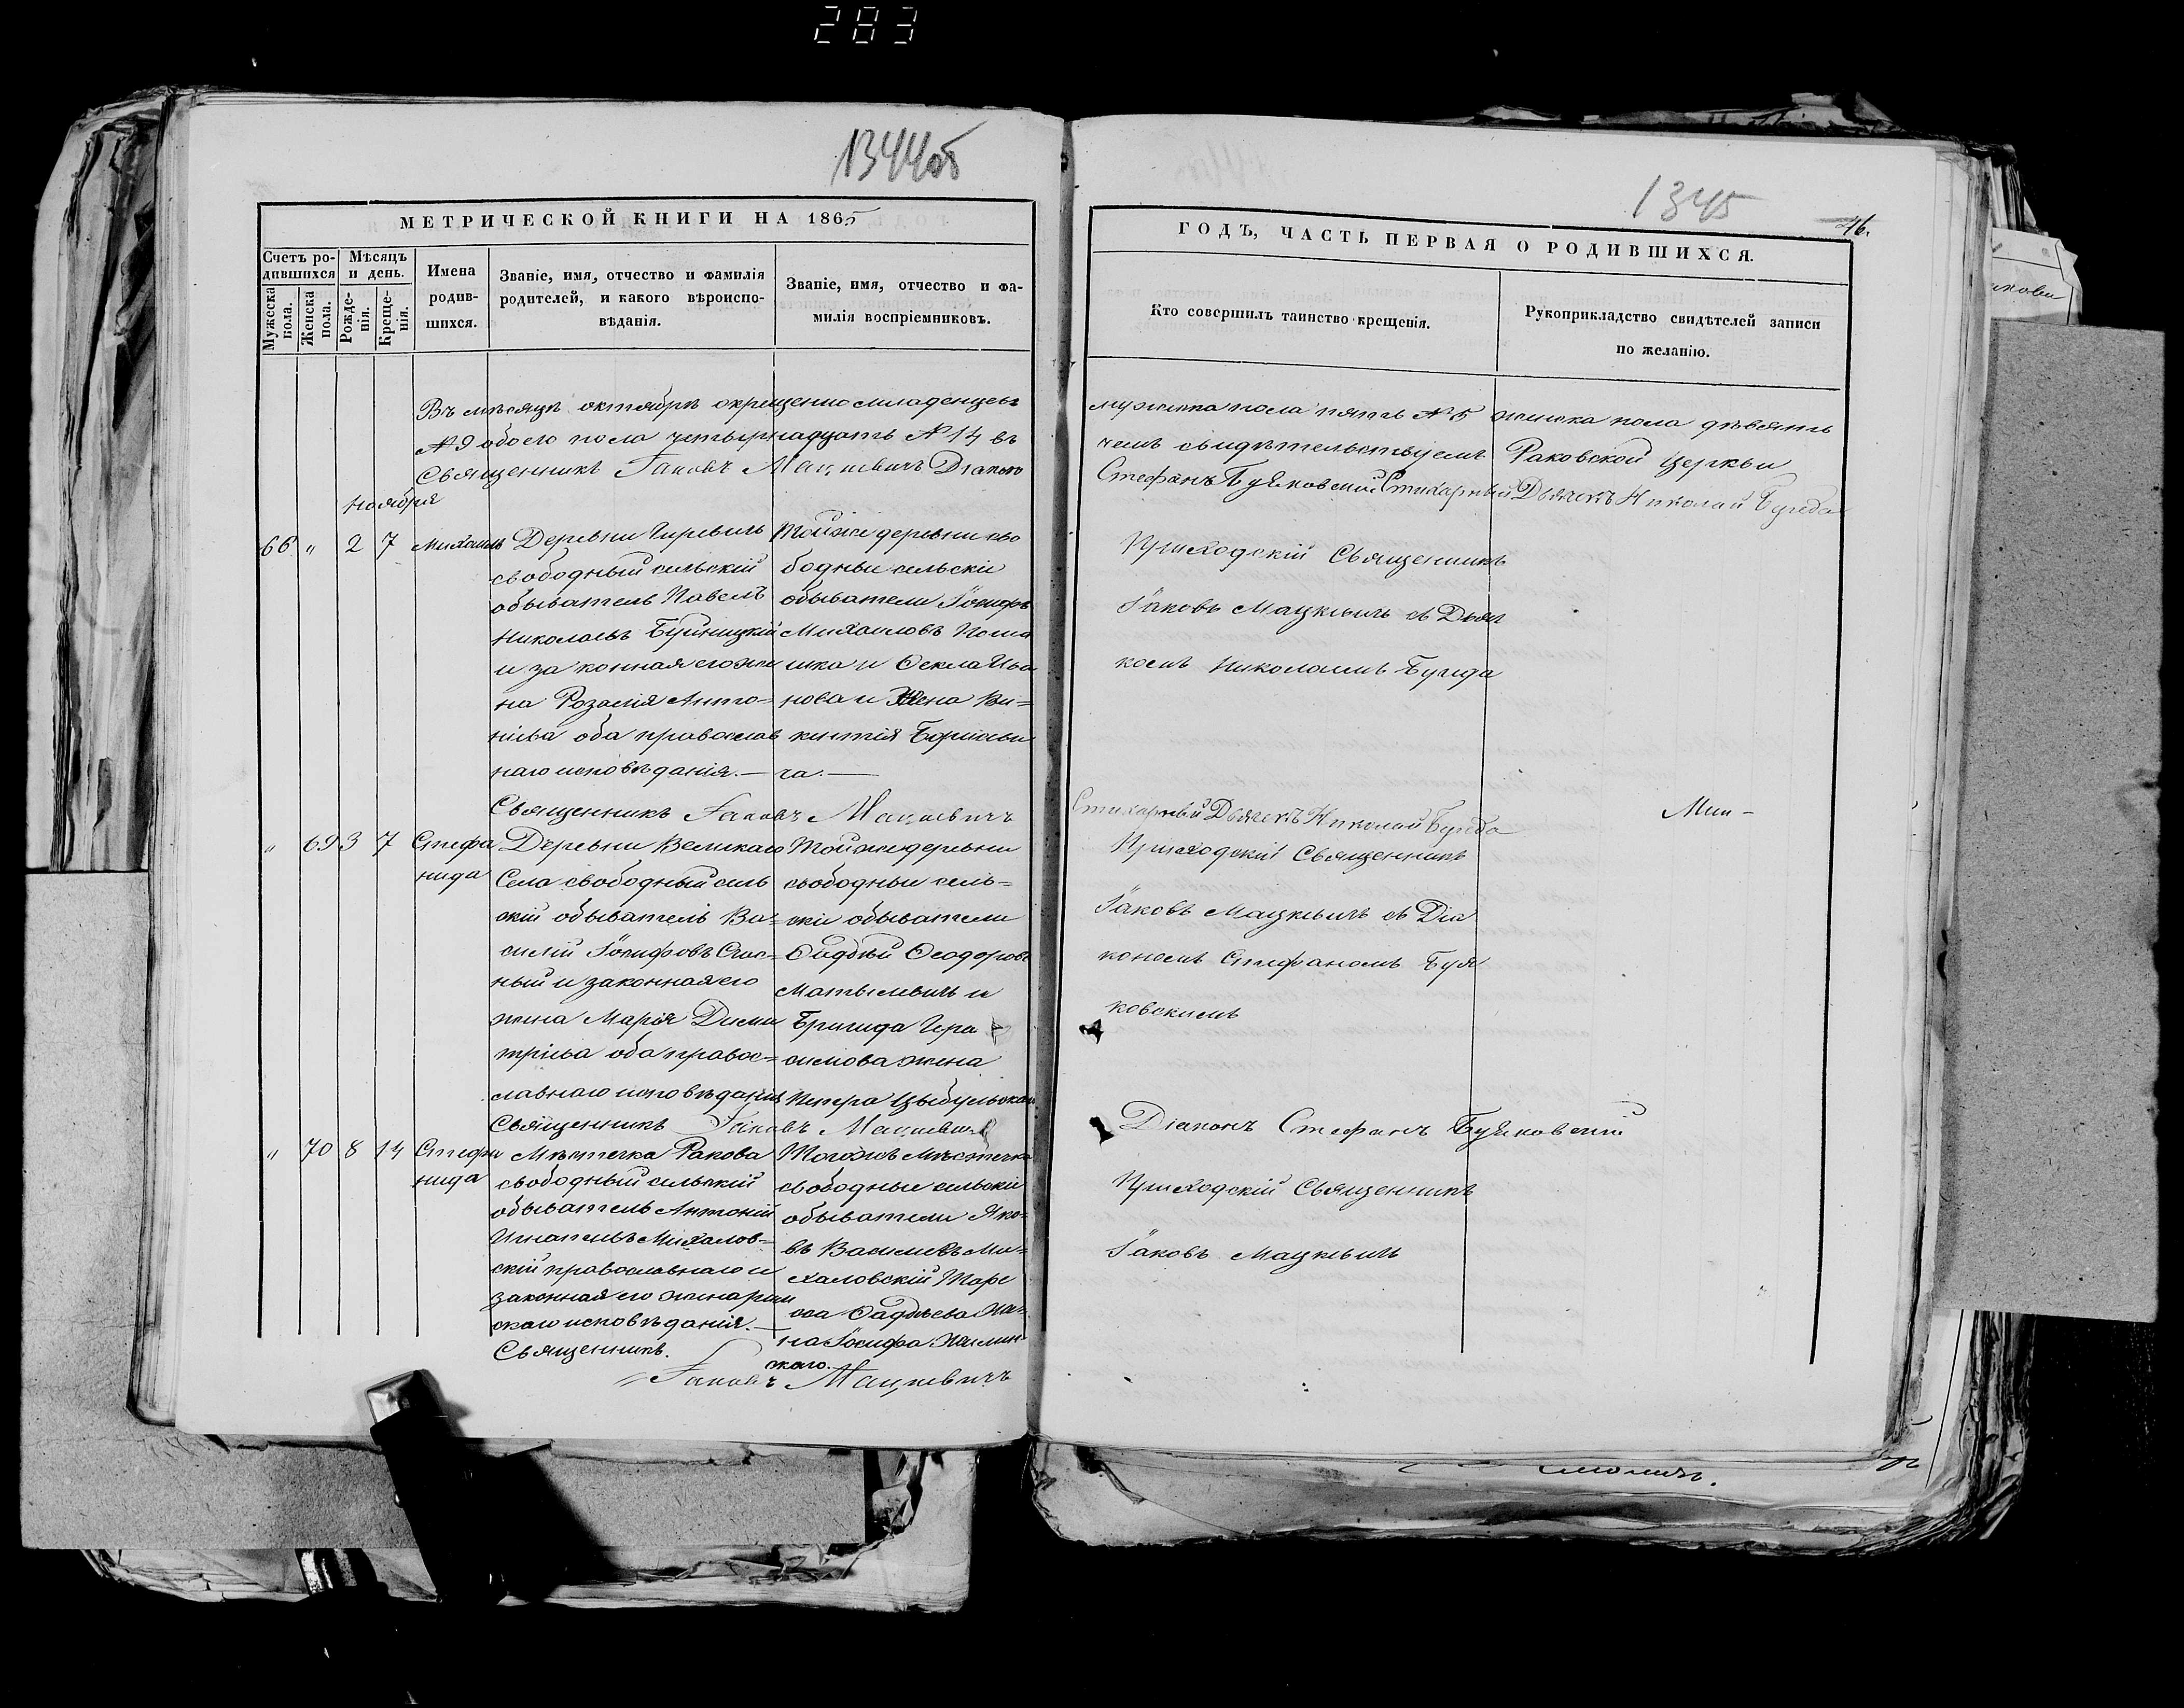 283
1344об
МЕТРИЧЕСКОЙ КНИГИ НА 1865
Счетъ ро-
дившихся
Мѣсяцъ
и день.
Мужеска
пола.
Женска
пола.
Рожде-
нія.
Креще-
нія.
Имена
родив-
шихся.
Званіе, имя, отчество и фамилія
родителей, и какого вѣроиспо-
вѣданія.
Званіе, имя, отчество и фа-
милія воспріемниковъ.
Въ мѣсяцѣ октябрѣ окрещенно младенцевъ
№ 9 обоего пола четырнадцать № 14 въ
Священникъ Іаковъ Мацкевичъ Діаконъ
Ноября
66 " 2 7 Михаилъ
Деревни
свободный сельскій
обыватель Павелъ
Николаевъ Буйницкій
и законная его же
на Розалія Анто=
ніева оба православ
наго исповѣданія.—
Тойже деревни сво
бодные сельскіе
обыватели Іосифъ
Михаиловъ
и Ѳекла Ива
нова и жена Ви=
кентія
ча.—
Священникъ Іаковъ Мацкевичъ
" 69 3 7 Стефа
нида
Деревни Великаго
Села свободный сель
скій обыватель Ва=
силій Іосифовъ
ный и законная его
жена Марія Дими
тріева оба правос=
лавнаго исповѣданія
Тойже деревни
свободные сель=
скіе обыватели
Ѳаддей Ѳеодоровъ
Матысевичъ и
Бригида Гера
симова жена
Петра Цыбульскаго
Священникъ Іаковъ Мацкевичъ
" 70 8 14 Стефа
нида
Мѣстечка Ракова
свободный сельскій
обыватель Антоній
Игнатьевъ Михалов=
скій православнаго и
законная его жена рим
скаго исповѣданія.—
Тогожъ мѣстечка
свободные сельскіе
обыватели Яко=
въ Васильевъ Ми=
халовскій
Ѳаддѣева же=
на Іосифа
скаго.
Священникъ.
Іаковъ Мацкевичъ
1345
46.
ГОДЪ, ЧАСТЬ ПЕРВАЯ О РОДИВШИХСЯ.
Кто совершилъ таинство крещенія.
Рукоприкладство свидѣтелей записи
по желанію.
мужеска пола пять № 5 женска пола девять
чемъ свидѣтельствуемъ Раковской церкви
Стефанъ Буяковскій Стихарный Дьячекъ Николай
Приходскій Священникъ
Іаковъ Мацкевичъ съ Дьяч
комъ Николаемъ
Стихарный Дьячекъ Николай
Приходскій Священникъ
Іаковъ Мацкевичъ съ Діа
кономъ Стефаномъ Буя
ковскимъ
Діаконъ Стефанъ Буяковскій
Приходскій Священникъ
Іаковъ Мацкевичъ